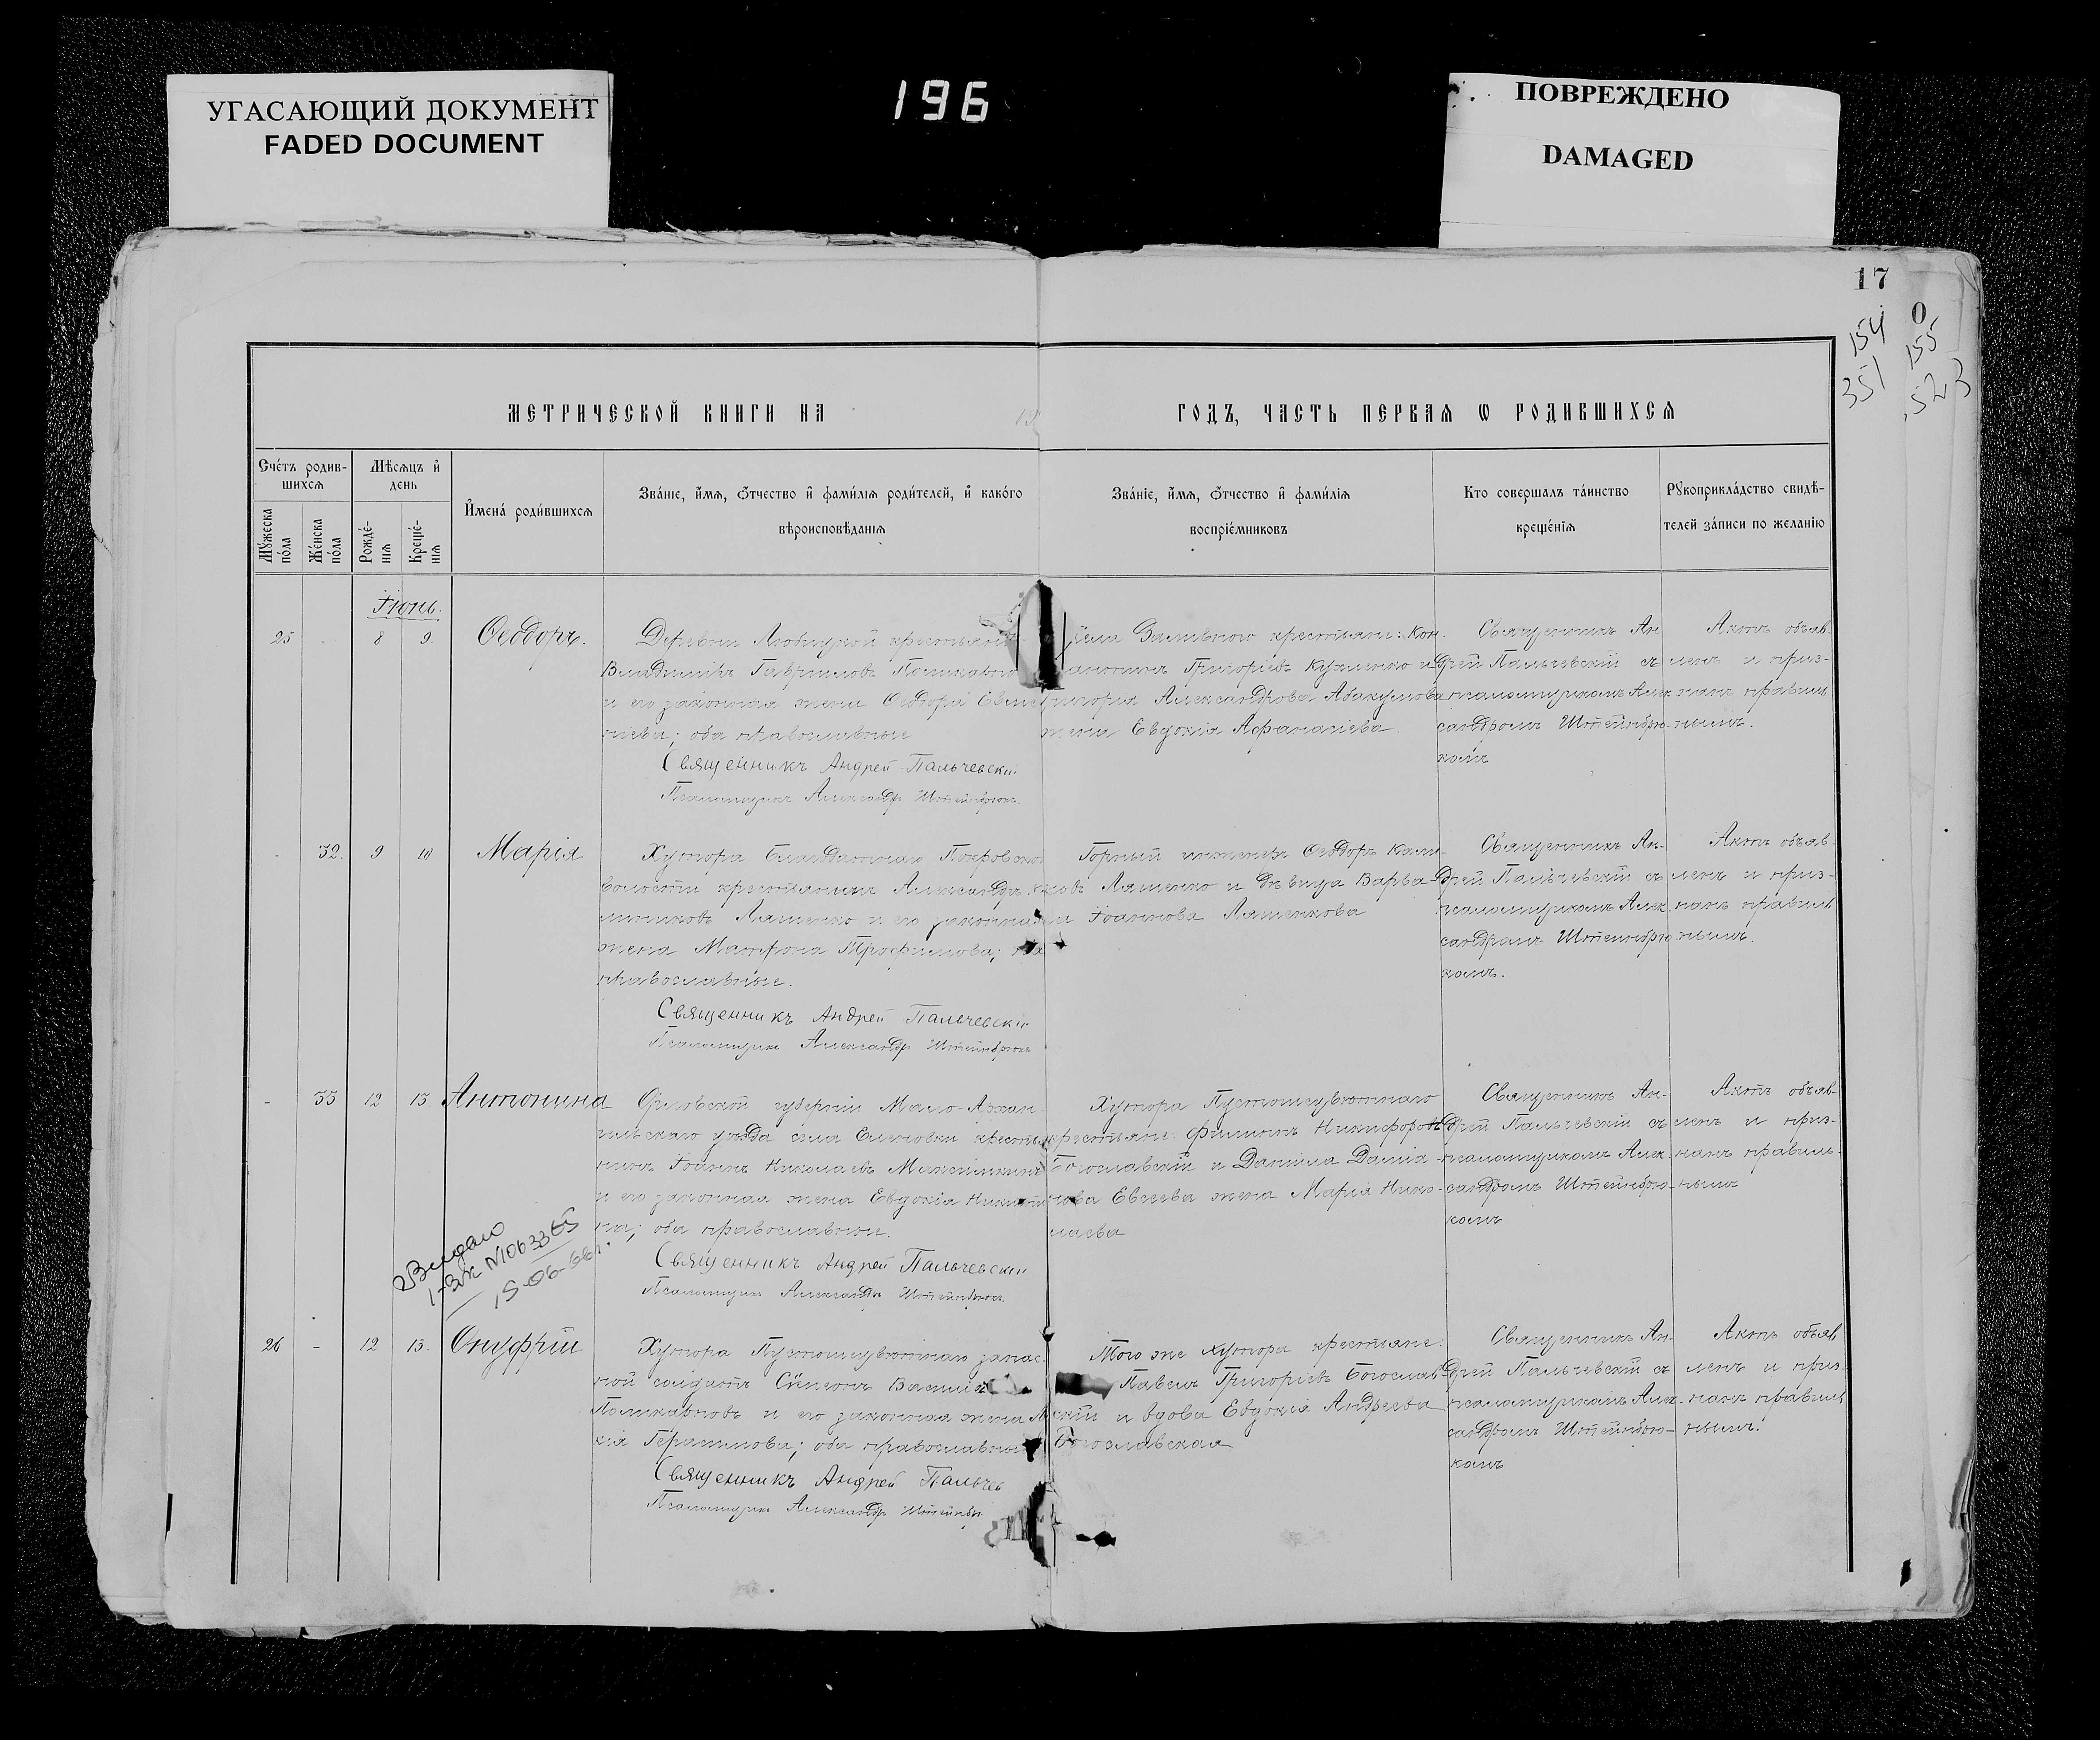 УГАСАЮЩИЙ ДОКУМЕНТ
FADED DOCUMENT
196
ПОВРЕЖДЕНО
DAMAGED
17
0
154
155
351
523
МЕТРИЧЕСКОЙ КНИГИ НА
ГОДЪ, ЧАСТЬ ПЕРВАЯ Ѡ РОДИВШИХСЯ
Счётъ родив-
шихся
Мѣсяцъ и
день
Мужеска
пола
Женска
пола
Рожде-
нія
Креще-
нія
Имена родившихся
Званіе, имя, отчество и фамилія родителей, и какого
вѣроисповѣданія
Званіе, имя, отчество и фамилія
воспріемниковъ
Кто совершалъ таинство
крещенія
Рукоприкладство свидѣ-
телей записи по желанію
Іюнь.
25 - 8 9. Ѳеодоръ.
Деревни Любицкой
Владиміръ Гавриловъ
и его законная жена Ѳеодора
оба православные
Священникъ Андрей Пальчевскій
Псаломщикъ Александр Штейнбрюкъ
села Заливного крестьяне: Кон-
Григоріевъ Кузменко и
Александрова Абакумова
жена Евдокія Афанасіева.
Священникъ Ан-
дрей Пальчевскій съ
псаломщикомъ Алек-
сандромъ Штейнбрю-
комъ
Актъ объяв-
ленъ и приз-
нанъ правиль
нымъ.
- 32. 9 10 Марія
Хутора Благодатнаго Покровской
волости крестьянинъ Александръ
Ляшенко и его законная
жена Матрона Трофимова; оба
православные.
Священникъ Андрей Пальчевскій
Псаломщикъ Александр Штейнбрюкъ
Горный инженеръ Ѳеодоръ
Ляшенко и дѣвица Варва-
ра Іоаннова Ляшенкова
Священникъ Ан-
дрей Пальчевскій съ
псаломщикомъ Алек-
сандромъ Штейнбрю-
комъ.
Актъ объяв-
ленъ и приз-
нанъ правиль
нымъ.
- 33 12 13 Антонина
Орловской губерніи Мало-Архан-
гельскаго уѣзда села крестья-
нинъ Іоаннъ Николаевъ
и его законная жена Евдокія Никити-
на; оба православные.
Священникъ Андрей Пальчевскій
Псаломщикъ Александръ Штейнбрюкъ
Хутора
крестьяне: Филиппъ Никифоровъ
Богославскій и Даніила Даніи-
лова Евсеева жена Марія Нико-
лаева
Священникъ Ан-
дрей Пальчевскій съ
псаломщикомъ Алек-
сандромъ Штейнбрю-
комъ
Актъ объяв-
ленъ и приз-
нанъ правиль-
нымъ
Видано
26 - 12 13. Онуфрій
Хутора запас-
ной солдатъ Сѵмеонъ
Поликарповъ и его законная жена
Герасимова; оба православные
Священникъ Андрей Пальчев
Псаломщикъ Александр Штейнбр
Того же хутора крестьяне:
Павелъ Григоріевъ Богослав-
скій и вдова Евдокія Андреева
Богославская
Священникъ Ан-
дрей Пальчевскій съ
псаломщикомъ Алек-
сандромъ Штейнбрю-
комъ
Актъ объяв
ленъ и приз-
нанъ правиль
нымъ.